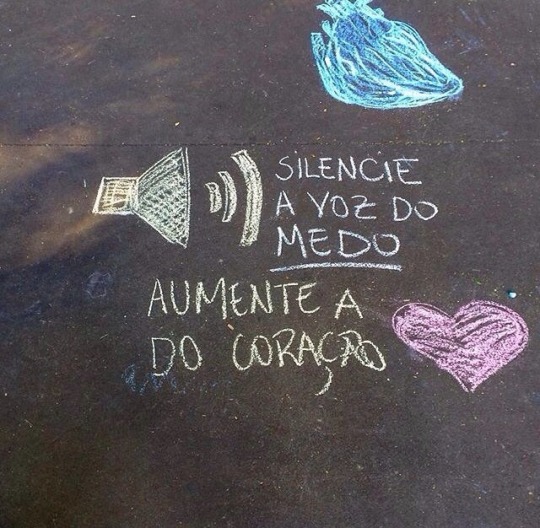 SILENCIE
A VOZ DO
MEDO
AUMENTE A
DO CORAÇÃO